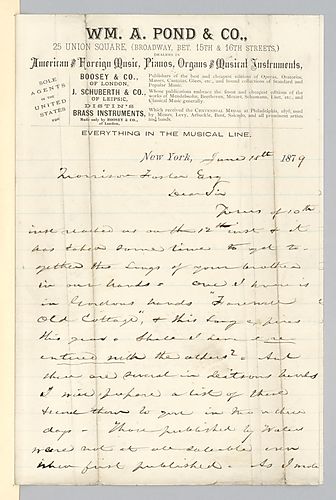 WM. A. POND & CO.,
25 UNION SQUARE, (BROADWAY, BET. 15TH & 16TH STREETS,)
DEALERS IN
American and Foreign Music, Pianos, Organs and Musical Instruments,
SOLE AGENTS IN THE UNITED STATES FOR
BOOSEY & CO.,
OF LONDON,
Publishers of the best and cheapest edition of Operas, Oratorios, Masses, Cantatas, Glees, etc., and bound collections of Standard and Popular Music.
J. SCHUBERTH & CO.,
OF LEIPSIC,
Whose publications embrace the finest and cheapest edition of the works of Mendelssohn, Beethoven, Mozart, Schumann, Liszt, etc., and Classical Music generally.
DISTIN'S
BRASS INSTRUMENTS,
Made only by BOOSEY & CO., of London,
Which received the CENTENNIAL MEDAL at Philadelphia, 1876, used by Mores, Levy, Arbuckle, Bent, Seicido, and all prominent artists and bands.
EVERYTHING IN THE MUSICAL LINE.
New York, June 18th 1879
Morrison Foster Esq
Dear Sir
Yours of 10th
inst reached us on the 12th inst & it
has taken some time to get to-
gether the Songs of your brother
in our hands & One I know is
in Gordons hands "Farewell
Old Cottage", & this Song expires
this year & Shall I have it re-
entered with the others? And
there are several in Ditsons hands
I will prepare a list of these
& send them to you in two or three
days - Those published by Waters
were not at all saleable even
when first published. As I made